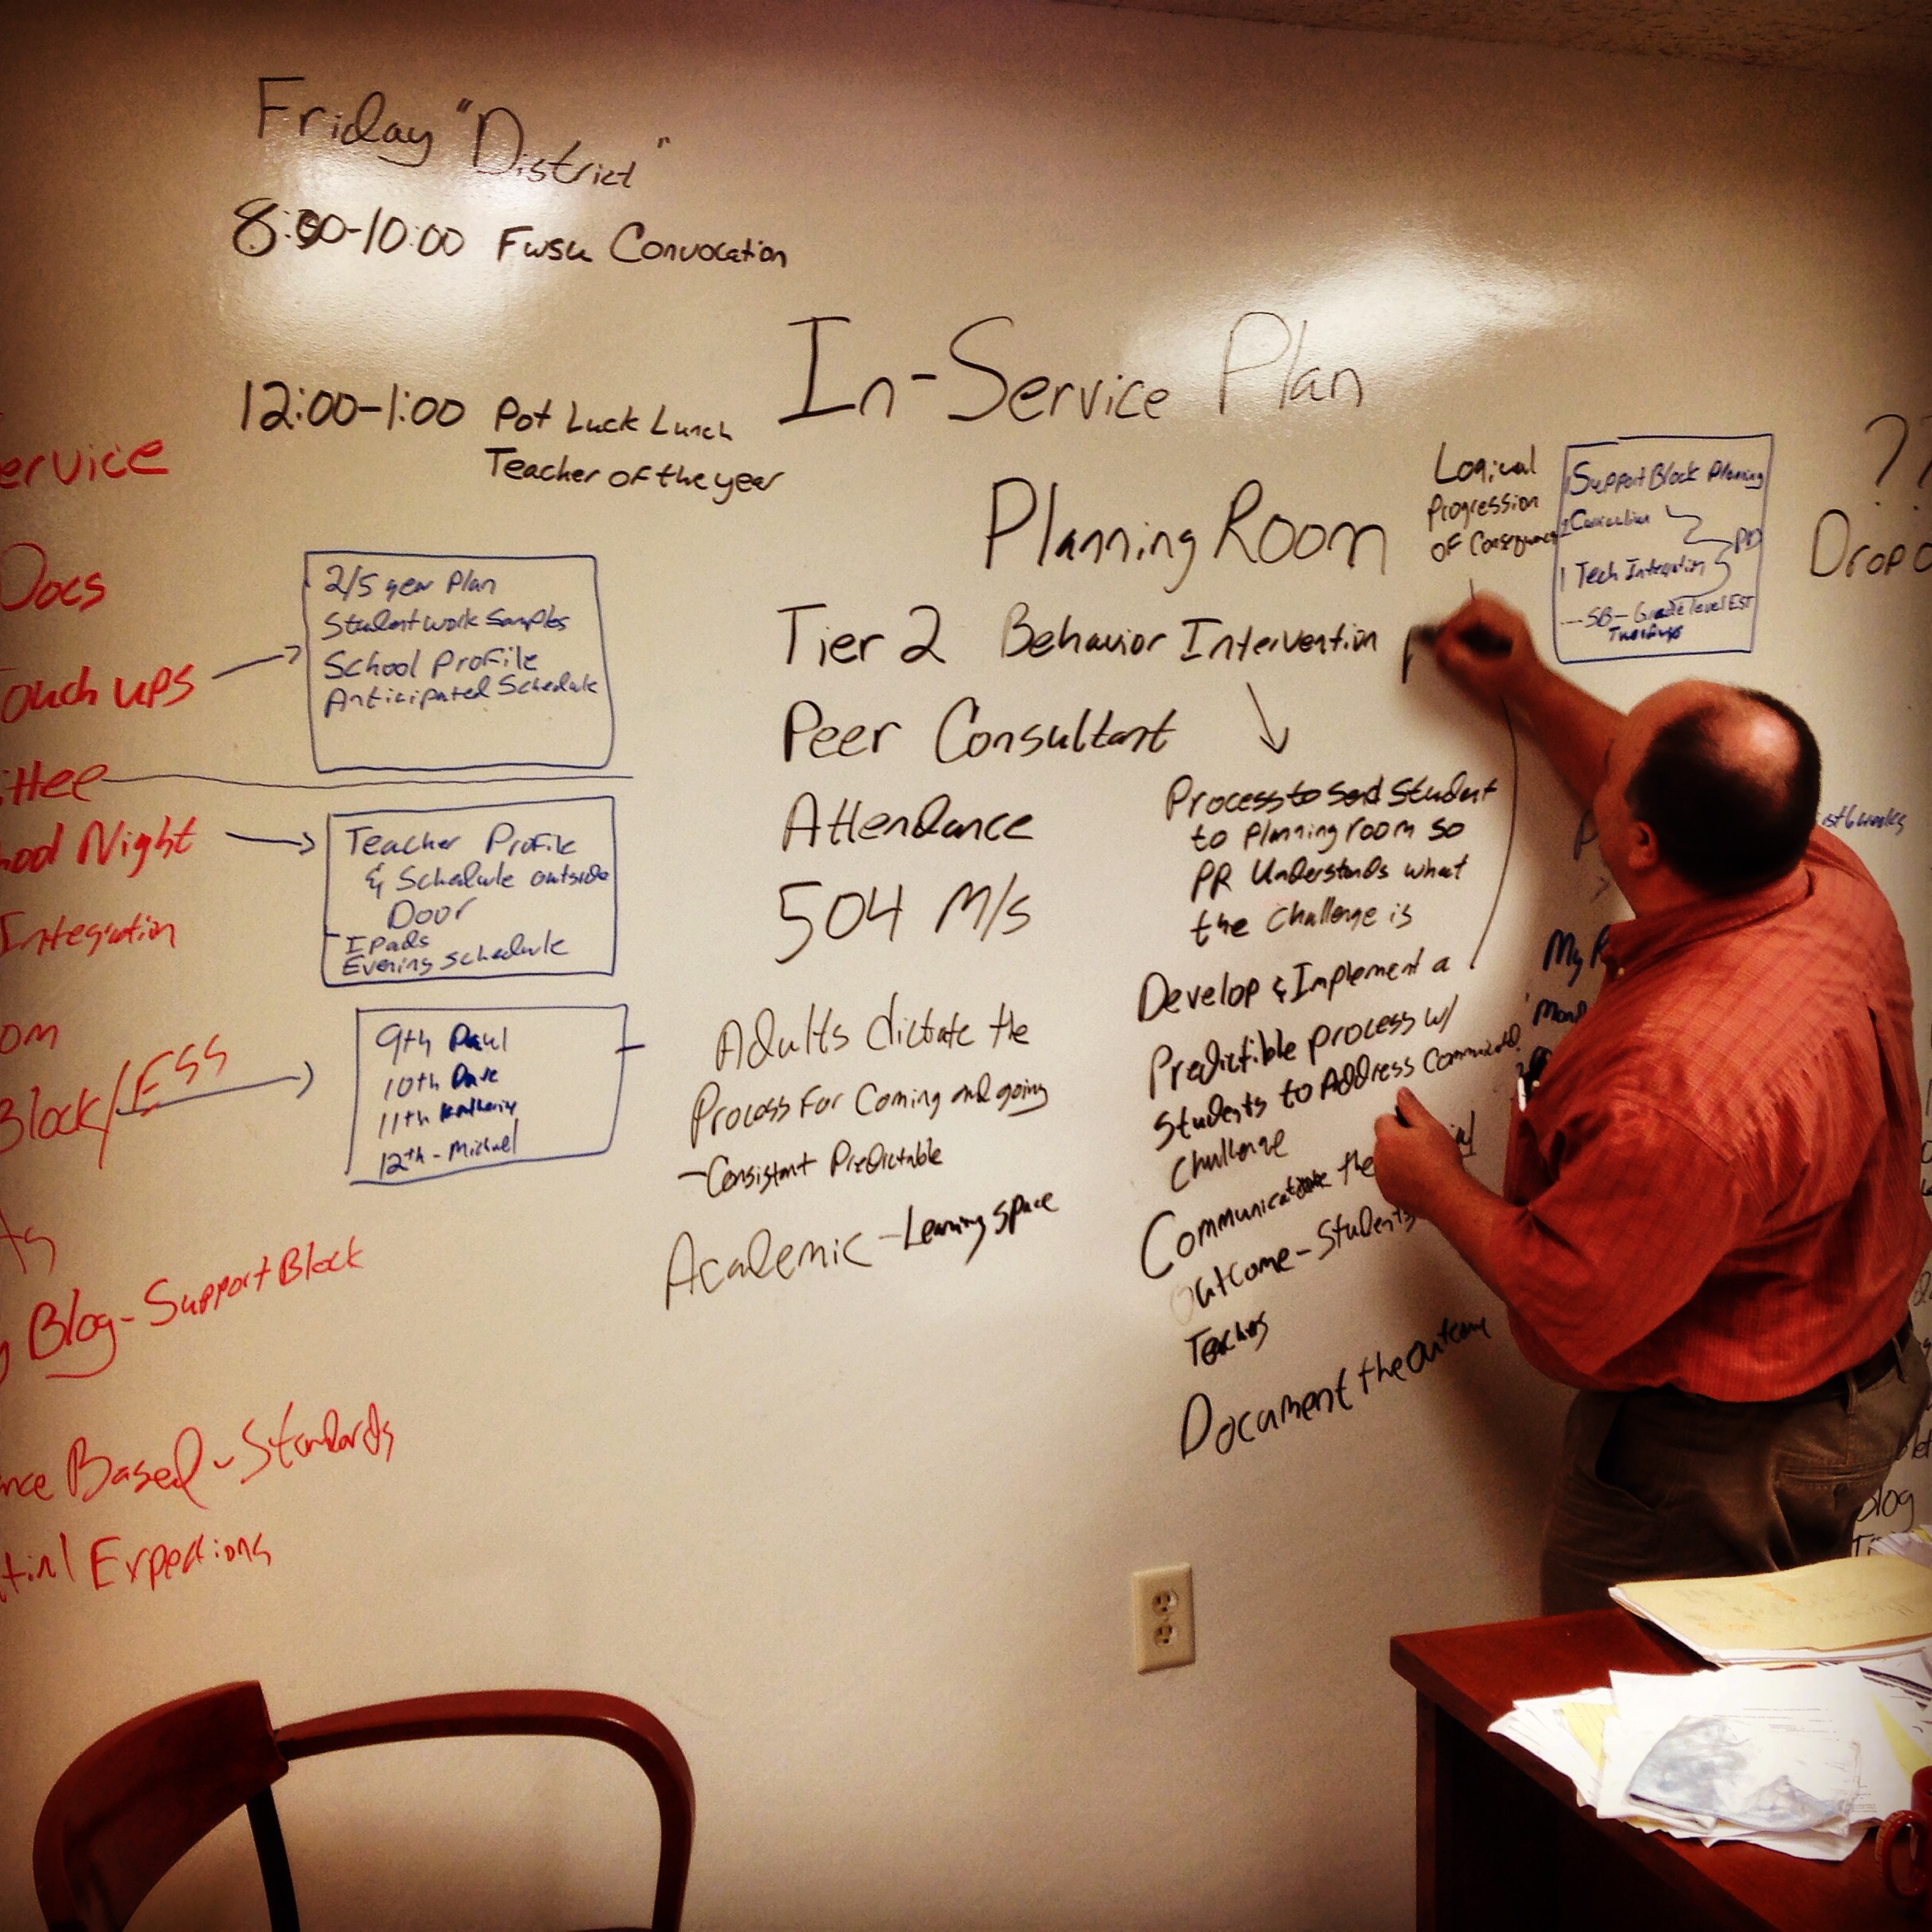 Friday "District"
8:00-10:00 Fwsu Convocation
12:00-1:00 Pot Luck Lunch
Teacher of the year
In-Service Plan
ervice
Docs
ouch ups
ittee
ood Night
Integration
om
Block/ESS
Blog-Support Block
nce Based-Standards
2/5 year Plan
Student work Samples
School Profile
Anticipated Schedule
Teacher Profile
& Schedule outside
Door
Ipads
Evening Schedule
9th Paul
10th Dave
11th
12th-Michael
Planning Room
Tier 2 Behavior Intervention
Peer Consultant
Attendance
504 M/s
Adults dictate the
Process for Coming and going
-Consistant Predictable
Academic-Learning space
Logical
Progression
of
Process to send Student
to planning room so
PR Understands what
the challenge is
Develop & Implement a
Predictible process w/
students to Address
challenge
Communicate the
outcome-Students
Teachers
Document the outcome
Support Block Planning
Curriculum
PD
1 Tech Integration
SB-Grade level EST
??
Drop
1st 6 weeks
My
Blog